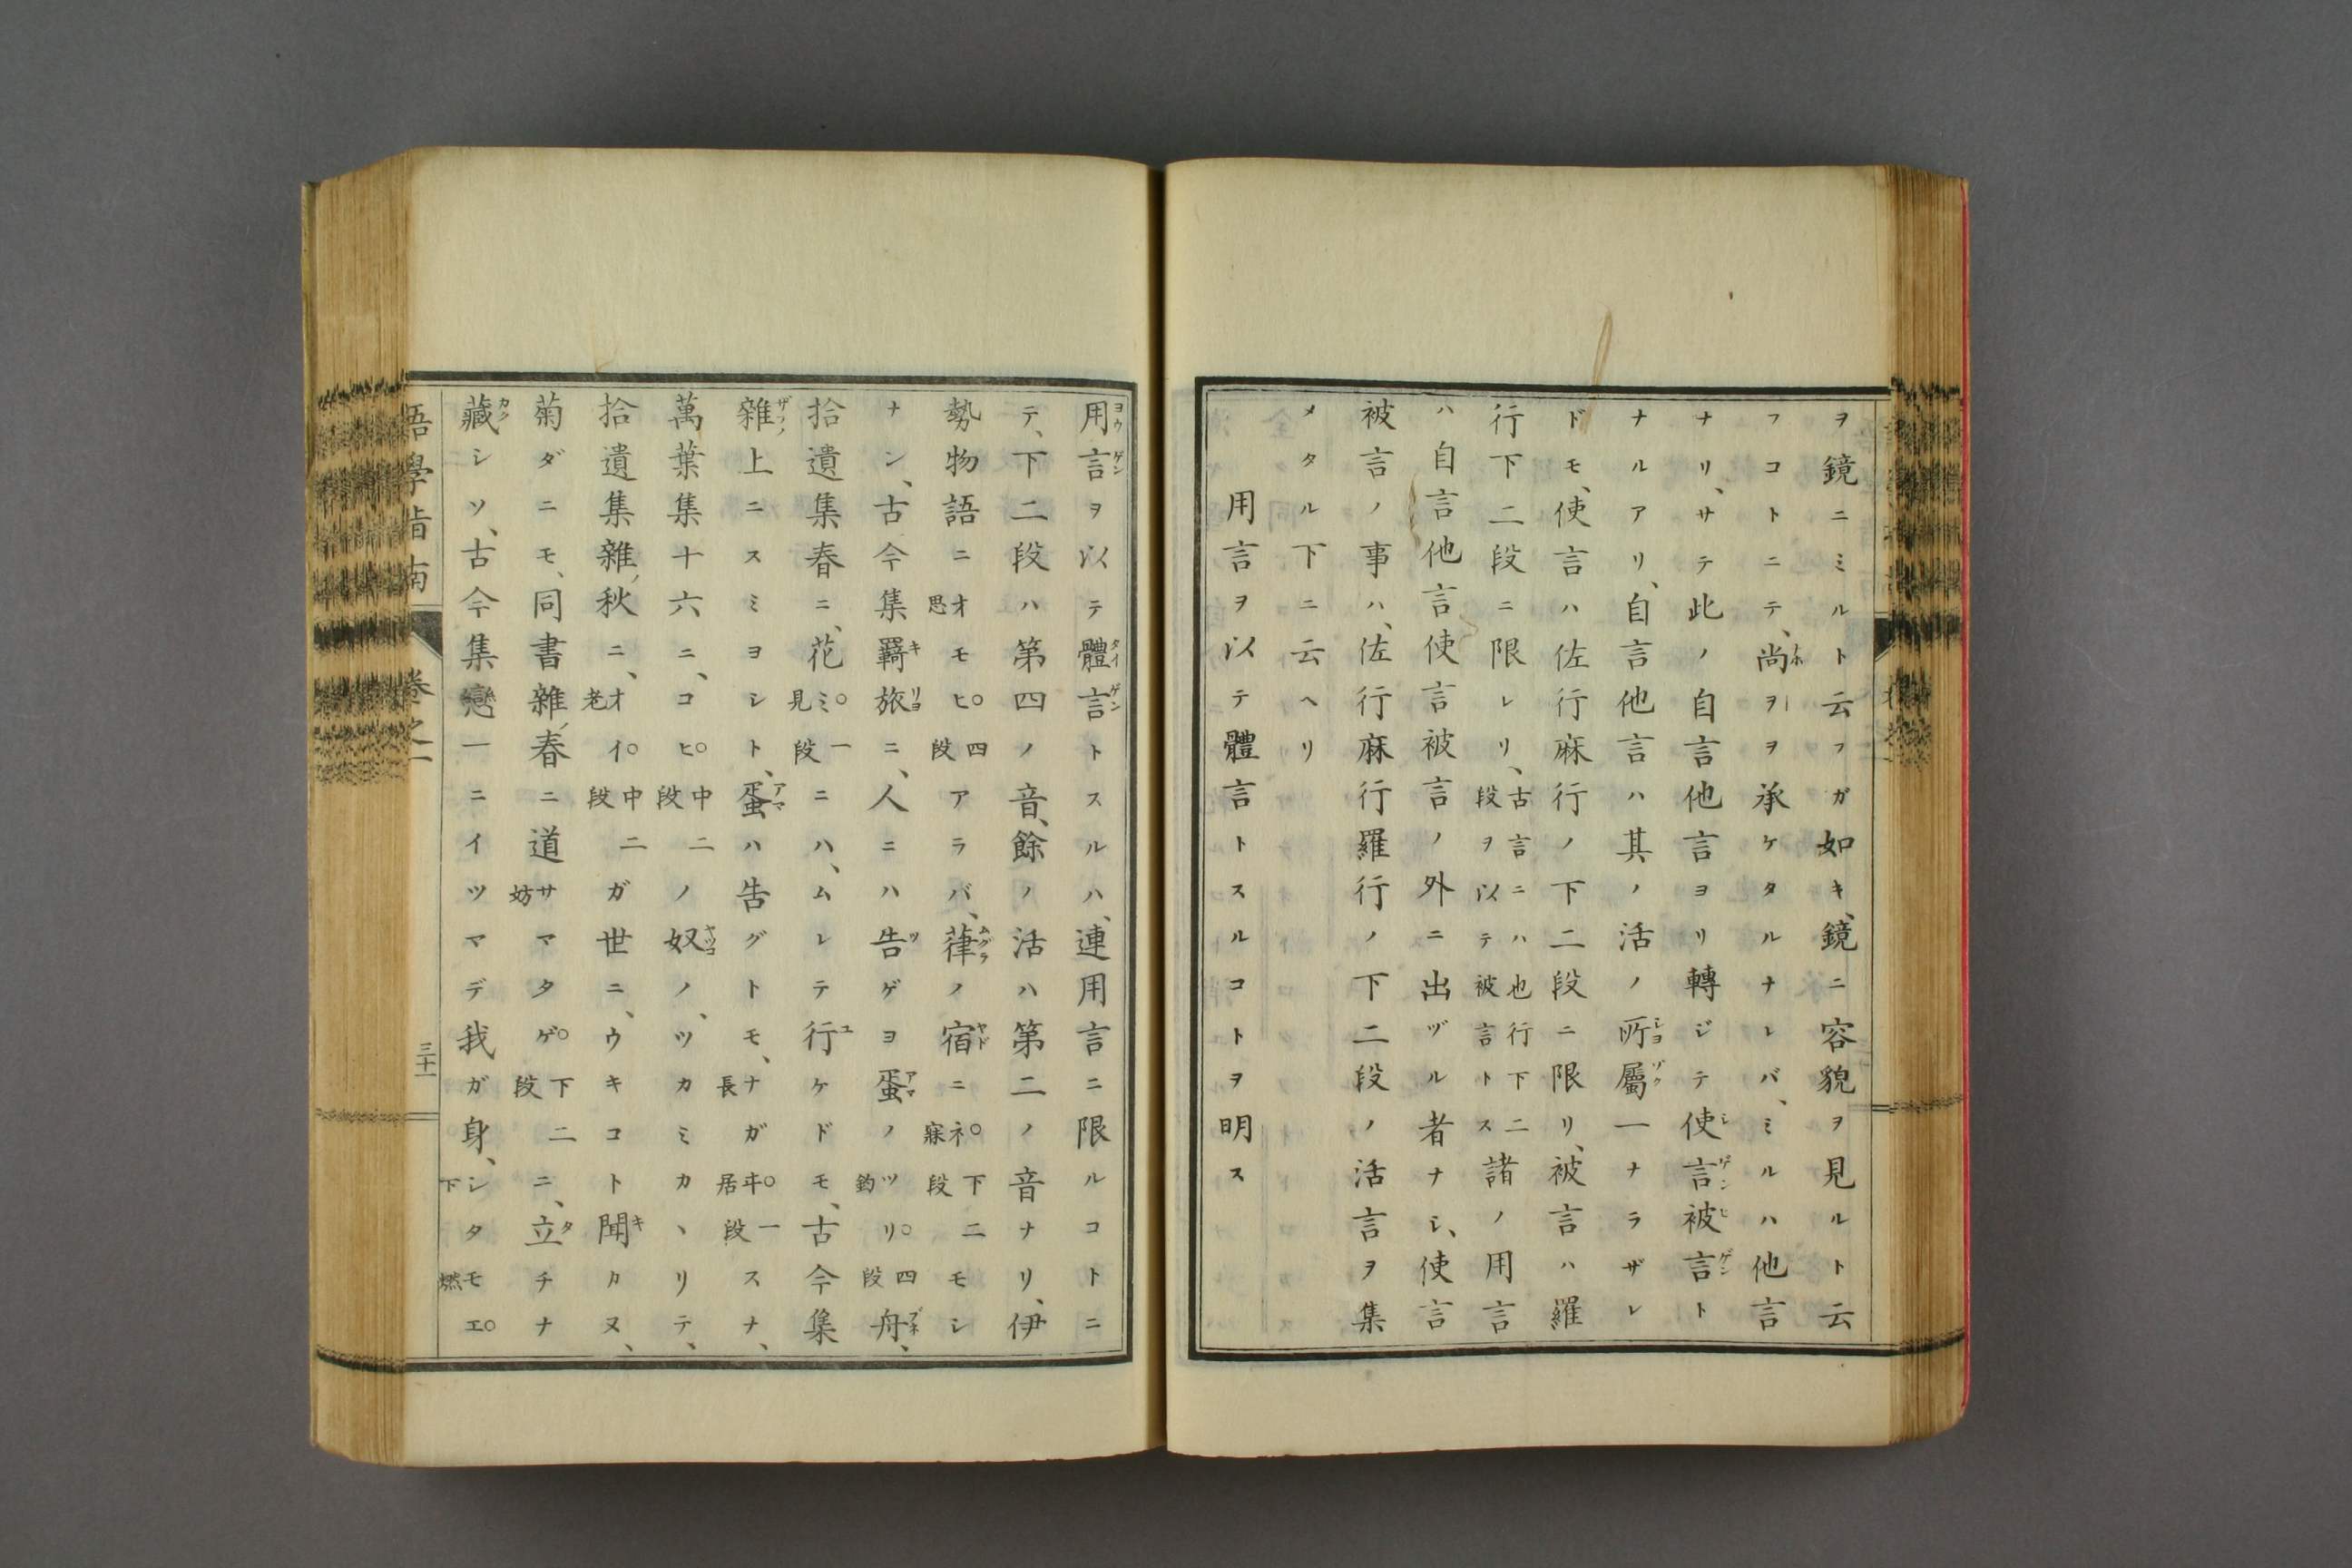 ヲ鏡ニミルト云フガ如キ、鏡ニ容貌ヲ見ルト云
フコトニテ、尚ヲヲ承ケタルナレバ、ミルハ他言
ナリ、サテ此ノ自言他言ヨリ轉ジテ使言被言ト
ナルアリ、自言他言ハ其ノ活ノ所屬一ナラザレ
ドモ、使言ハ佐行麻行ノ下二段ニ限リ、被言ハ羅
行下二段ニ限レリ、古言ニハ也行下二段ヲ以テ被言トス諸ノ用言
ハ自言他言使言被言ノ外ニ出ヅル者ナシ、使言
被言ノ事ハ、佐行麻行羅行ノ下二段ノ活言ヲ集
メタル下ニ云ヘリ
用言ヲ以テ體言トスルコトヲ明ス
用言ヲ以テ體言トスルハ、連用言ニ限ルコトニ
テ、下二段ハ第四ノ音、餘ノ活ハ第二ノ音ナリ、伊
勢物語ニオモヒ思四段アラバ、葎ノ宿ニネ寐下二段モシ
ナン、古今集羇旅ニ、人ニハ告ゲヨ蜑ノツリ釣四段舟、
拾遺集春ニ、花ミ見一段ニハ、ムレテ行ケドモ、古今集
雜上ニスミヨシト、蜑ハ告グトモ、ナガ長ヰ居一段スナ、
萬葉集十六ニ、コヒ中二段ノ奴ノ、ツカミカヽリテ、
拾遺集雜ノ秋ニ、オイ老中二段ガ世ニ、ウキコト聞カヌ、
菊ダニモ、同書雜ノ春ニ道サマタゲ妨下二段ニ、立チナ
藏シソ、古今集戀一ニイツマデ我ガ身、シタ下モエ燃
語學指南
卷之一
三十一